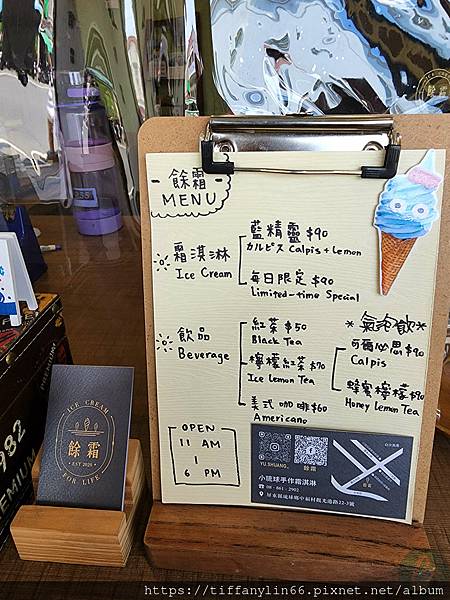 餘霜
MENU
霜淇淋
Ice Cream
藍精靈 $90
カルピス Calpis + Lemon
每日限定 $90
Limited-time Special
飲品
Beverage
紅茶 $50
Black Tea
檸檬紅茶 $70
Ice Lemon Tea
美式咖啡 $60
Americano
*氣泡飲*
可爾必思 $90
Calpis
蜂蜜檸檬 $90
Honey Lemon Tea
OPEN
11 AM
6 PM
YU.SHUANG_
餘霜
小琉球手作霜淇淋
08-861-2902
ICE CREAM
餘霜
EST 2020
FOR LIFE
餘霜
982
PREMIUM
https://tiffanylin66.pixnet.net/album